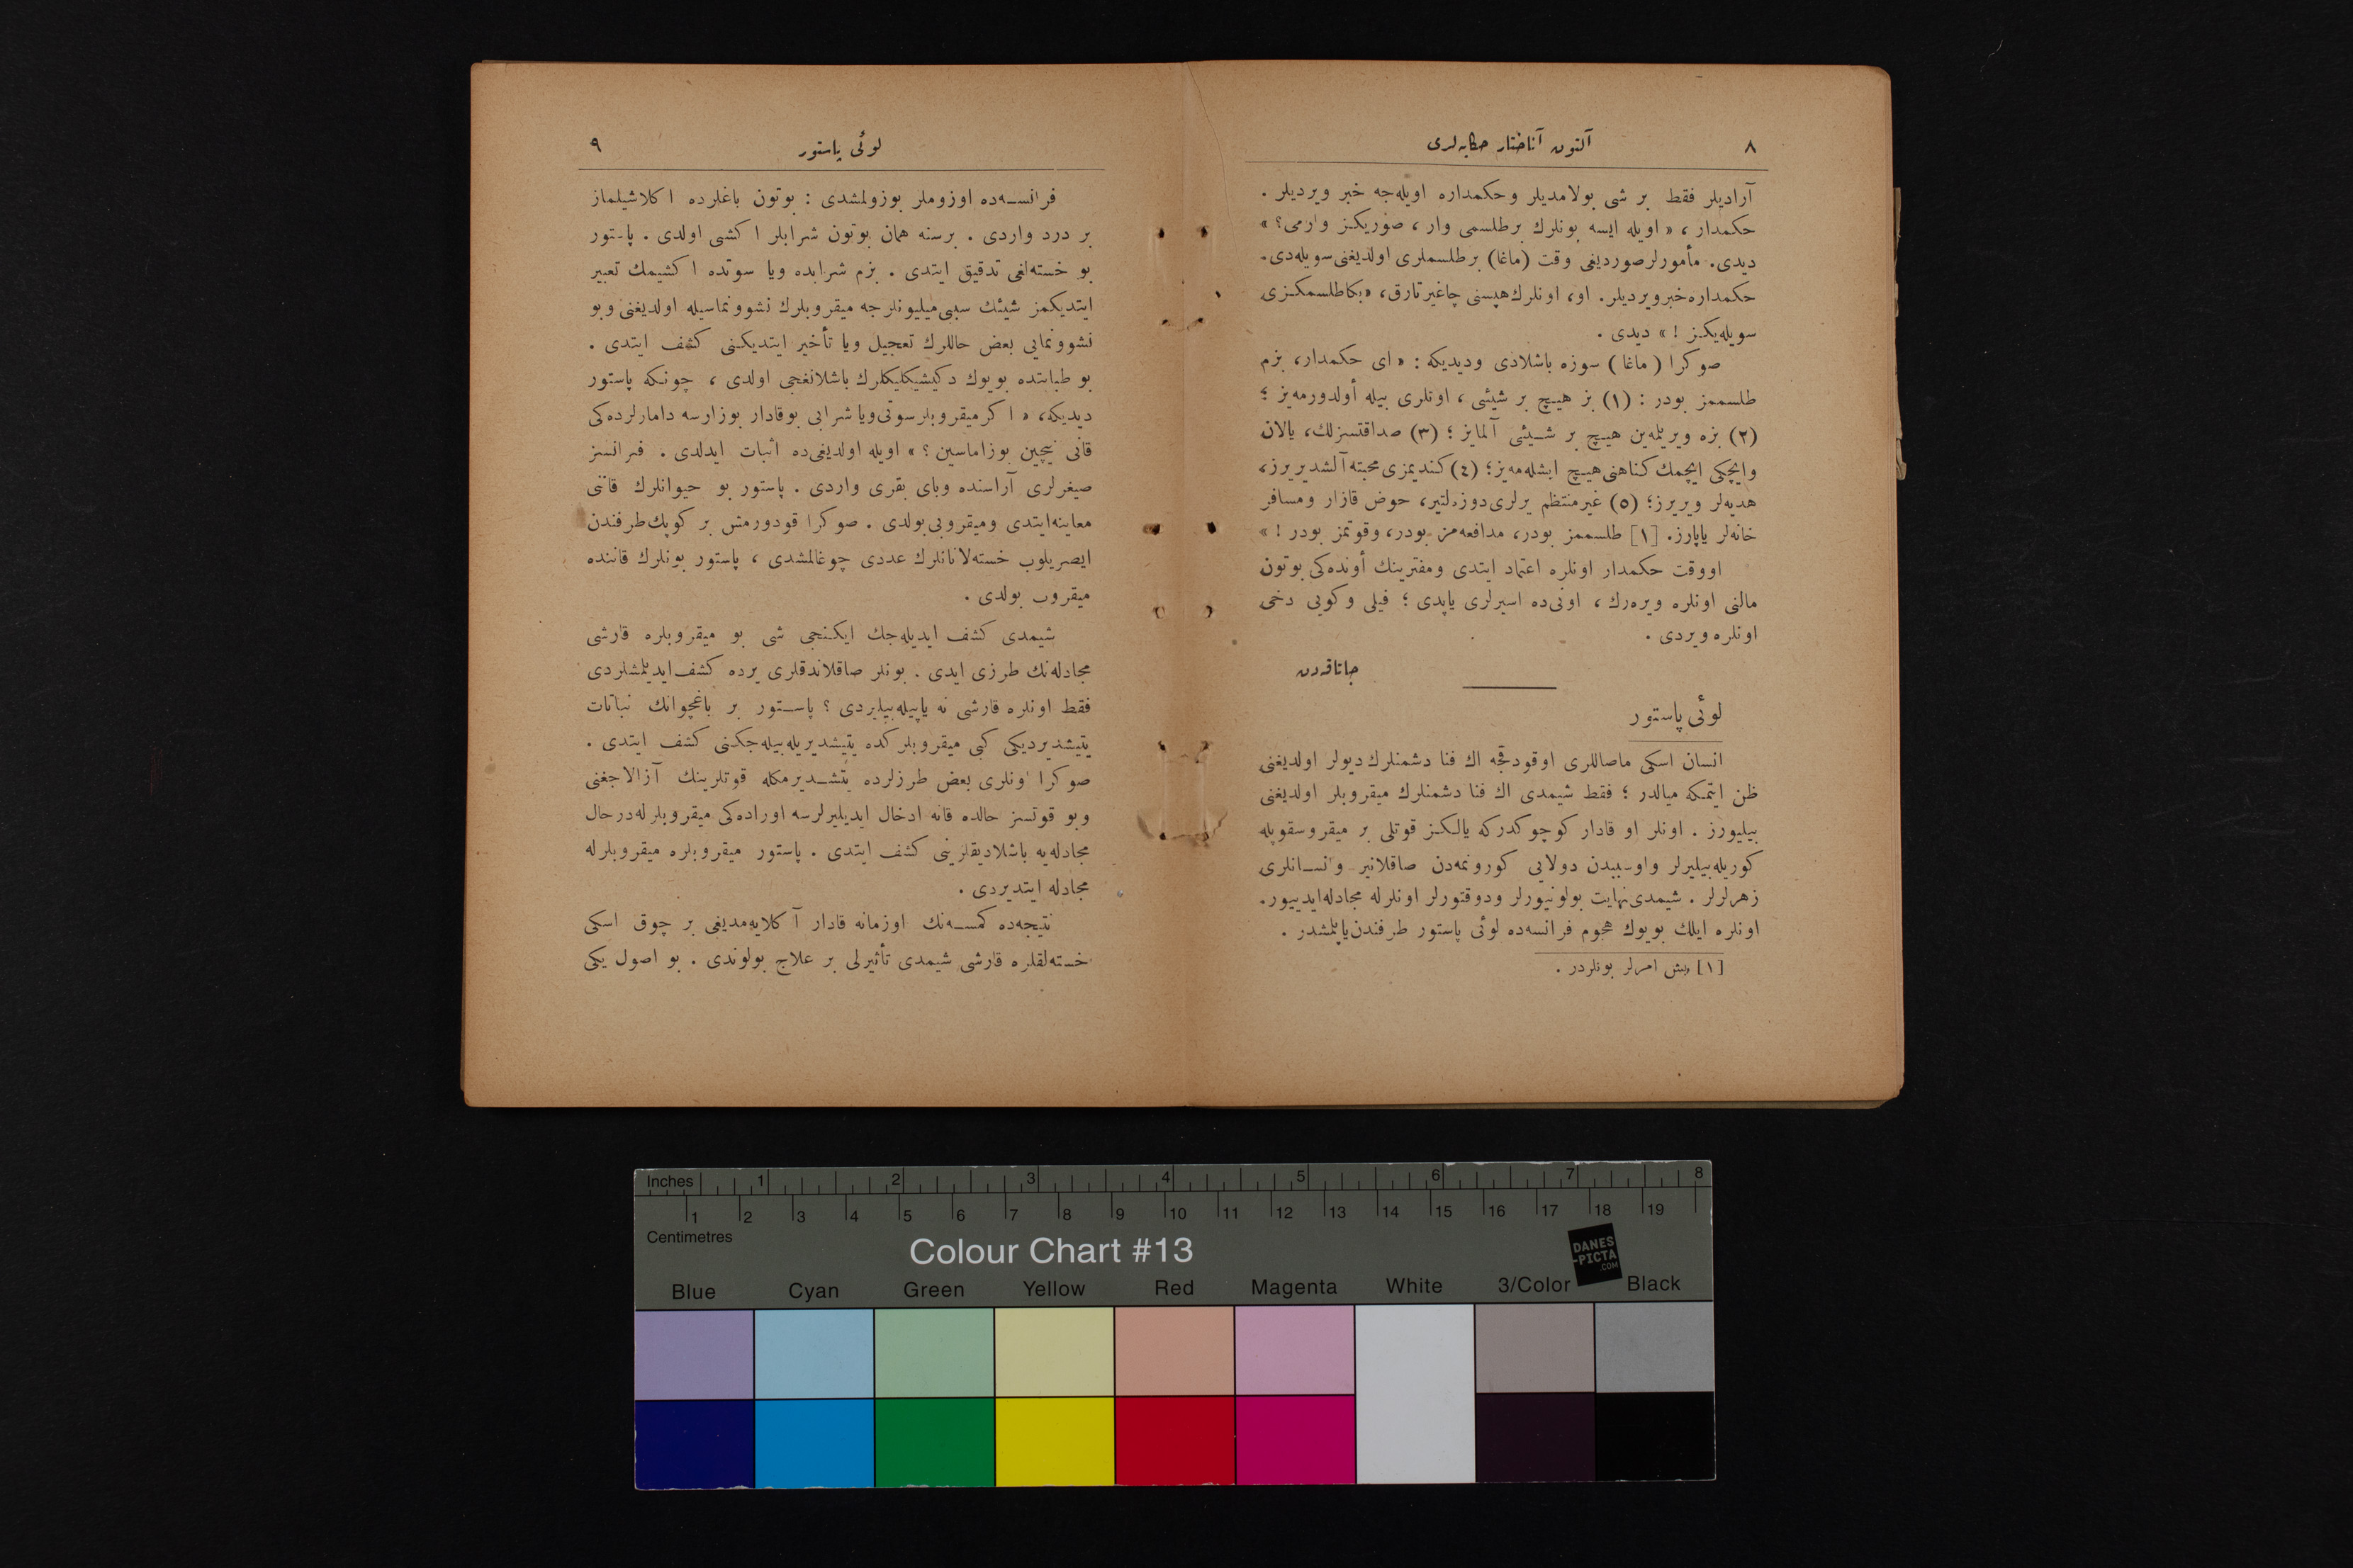 ٨
آلتون آناختار حكايه‌لرى
آراديلر فقط بر شى بولامديلر وحكمداره اويله‌جه خبر ويرديلر .
حكمدار ، « اويله ايسه بونلرك برطلسمى وار ، صوريكز وارمى؟ »
ديدى. مأمورلرصورديغى وقت (ماغا) برطلسملرى اولديغنى سويله‌دى.
حكمداره‌خبرويرديلر. او، اونلرك‌هپسنى چاغيرتارق، «بكاطلسمكزى
سويله‌يكز ! » ديدى .
صوكرا (ماغا) سوزه باشلادى وديديكه : « اى حكمدار، بزم
طلسممز بودر : (١) بز هيچ بر شيئى ، اوتلرى بيله أولدورمه‌يز ؛
(٢) بزه ويريلمه‌ين هيچ بر شيئى آلمايز ؛ (٣) صداقتسزلك، يالان
وايچكى ايچمك كناهنى هيچ ايشله‌مه‌يز؛ (٤) كنديمزى محبته آلشديريرز،
هديه‌لر ويريرز؛ (٥) غيرمنتظم يرلرى دوزه‌لتير، حوض قازار ومسافر
خانه‌لر ياپارز. [١] طلسممز بودر، مدافعه‌مز بودر، وقوتمز بودر ! »
اووقت حكمدار اونلره اعتماد ايتدى ومفترينك أونده‌كى بوتون
مالنى اونلره ويره‌رك ، اونى‌ده اسيرلرى ياپدى ؛ فيلى وكويى دخى
اونلره ويردى .
جاتاقه‌دن
لوئى پاستور
انسان اسكى ماصاللرى اوقودقجه اك فنا دشمنلرك ديولر اولديغنى
ظن ايتمكه ميالدر ؛ فقط شيمدى اك فنا دشمنلرك ميقروبلر اولديغنى
بيليورز . اونلر او قادار كوچوكدركه يالكز قوتلى بر ميقروسقوپله
كوريله‌بيليرلر واوسببدن دولايى كورونمه‌دن صاقلانير وانسانلرى
زهرلرلر . شيمدى نهايت بولونيورلر ودوقتورلر اونلرله مجادله‌ايدييور.
اونلره ايلك بويوك هجوم فرانسه‌ده لوئى پاستور طرفندن ياپيلمشدر .
[١] بش امرلر بونلردر .
لوئى پاستور
٩
فرانسه‌ده اوزوملر بوزولمشدى : بوتون باغلرده اكلاشيلماز
بر درد واردى . برسنه همان بوتون شرابلر اكشى اولدى . پاستور
بو خسته‌لغى تدقيق ايتدى . بزم شرابده ويا سوتده اكشيمك تعبير
ايتديكمز شيئك سببى ميليونلرجه ميقروبلرك نشوونماسيله اولديغنى وبو
نشوونمايى بعض حاللرك تعجيل ويا تأخير ايتديكنى كشف ايتدى .
بو طبابتده بويوك دكيشيكليكلرك باشلانغجى اولدى ، چونكه پاستور
ديديكه، « اكر ميقروبلر سوتى ويا شرابى بوقادار بوزارسه دامارلرده‌كى
قانى نيچين بوزاماسين ؟ » اويله اولديغى‌ده اثبات ايدلدى . فرانسز
صيغرلرى آراسنده وباى بقرى واردى . پاستور بو حيوانلرك قاننى
معاينه‌ايتدى وميقروبى بولدى . صوكرا قودورمش بر كوپك طرفندن
ايصريلوب خسته‌لانانلرك عددى چوغالمشدى ، پاستور بونلرك قاننده
ميقروب بولدى .
شيمدى كشف ايديله‌جك ايكنجى شى بو ميقروبلره قارشى
مجادله‌نك طرزى ايدى . بونلر صاقلاندقلرى يرده كشف ايديلمشلردى
فقط اونلره قارشى نه ياپيله‌بيليردى ؟ پاستور بر باغچوانك نباتات
يتيشديرديكى كبى ميقروبلركده يتيشديريله‌بيله‌جكنى كشف ايتدى .
صوكرا اونلرى بعض طرزلرده يتشديرمكله قوتلرينك آزالاجغنى
وبو قوتسز حالده قانه ادخال ايديليرلرسه اوراده‌كى ميقروبلرله‌درحال
مجادله‌يه باشلاديقلرينى كشف ايتدى . پاستور ميقروبلره ميقروبلرله
مجادله ايتديردى .
نتيجه‌ده كمسه‌نك اوزمانه قادار آكلايه‌مديغى بر چوق اسكى
خسته‌لقلره قارشى شيمدى تأثيرلى بر علاج بولوندى . بو اصول يكى
Inches 1 2 3 4 5 6 7 8
1 2 3 4 5 6 7 8 9 10 11 12 13 14 15 16 17 18 19
Centimetres
Colour Chart #13
DANES
-PICTA
.COM
Blue Cyan Green Yellow Red Magenta White 3/Color Black